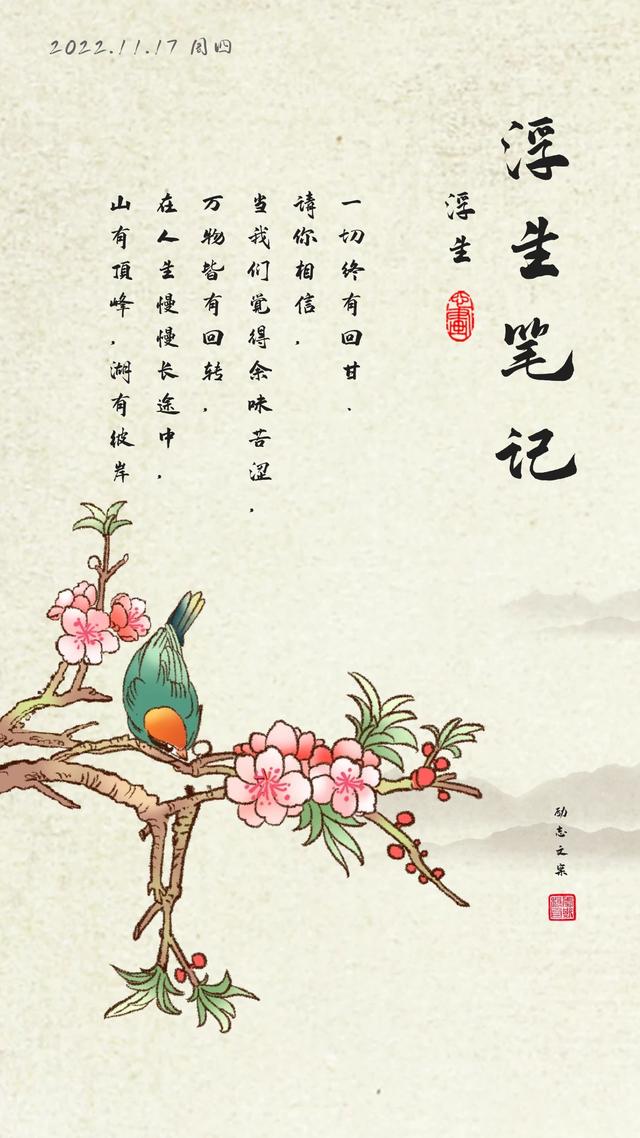 2022.11.17 周四
浮生笔记
浮生
一切终有回甘.
请你相信,
当我们觉得余味苦涩,
万物皆有回转,
在人生慢慢长途中,
山有頂峰,湖有彼岸
励志文案